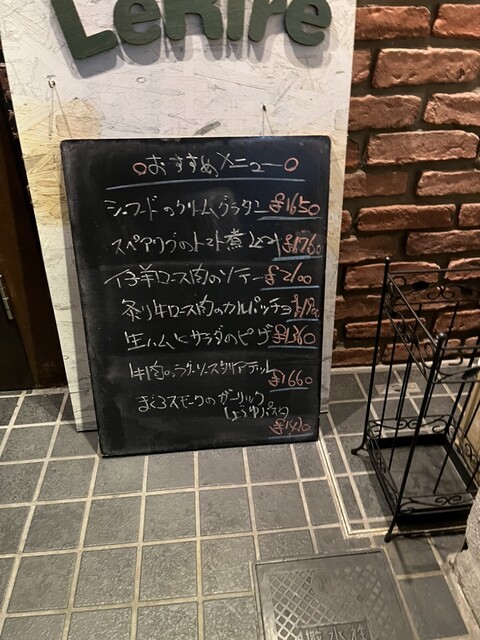 LeRire
おすすめメニュー
シーフードのクリームグラタン ¥1650
スペアリブのトマト煮込み ¥1760
仔羊ロース肉のソテー ¥2100
炙り牛ロース肉のカルパッチョ
生ハムとサラダのピザ ¥1360
牛肉のラグーソース
¥1660
まぐろスモークのガーリック
しょうゆパスタ